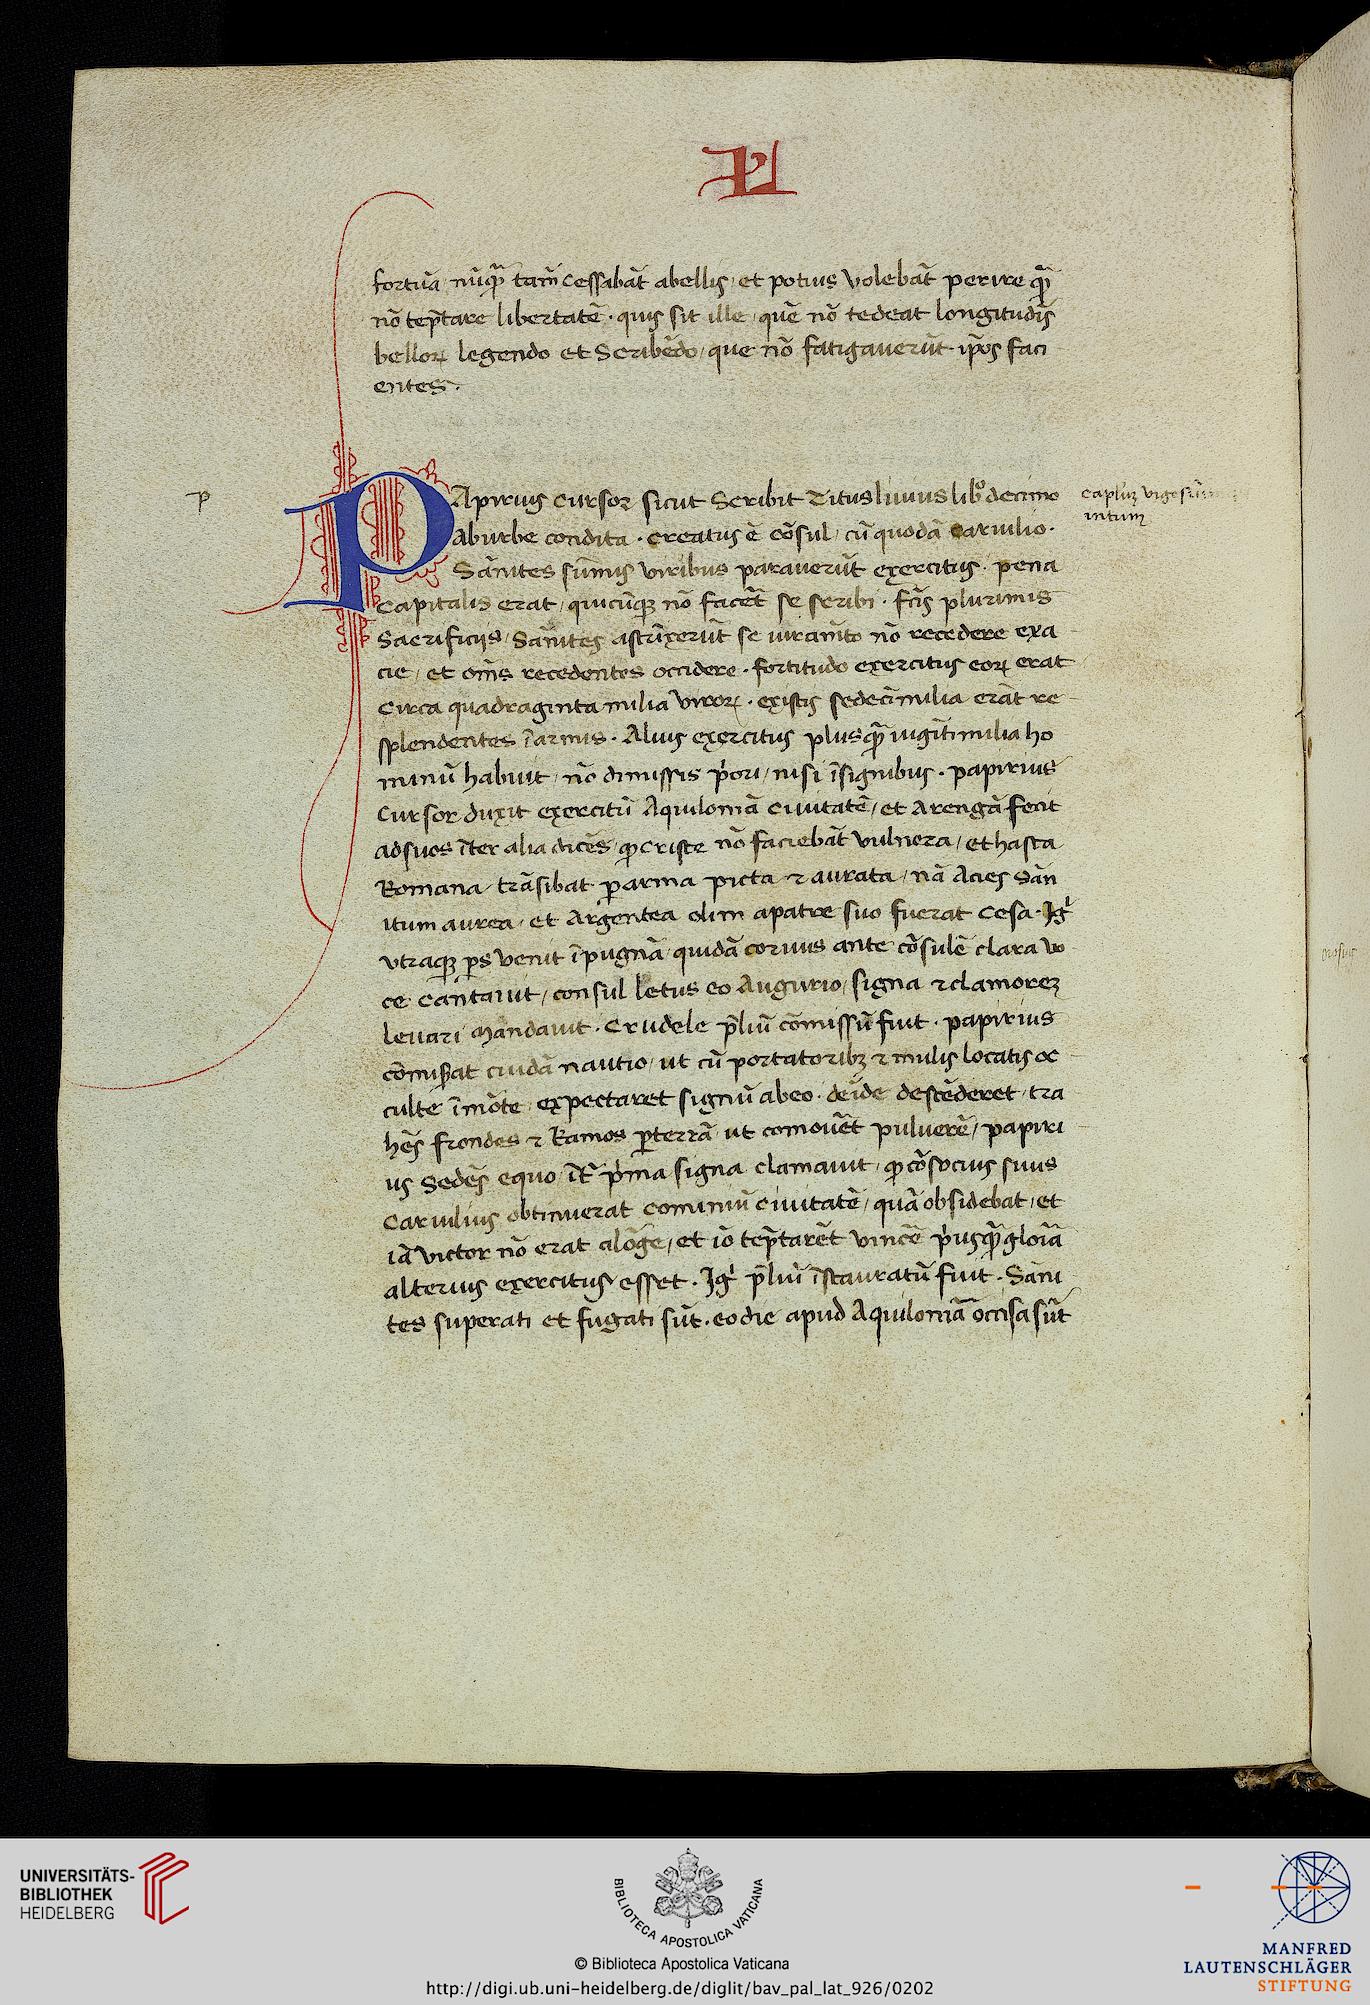 fortūa nūq̄ȝ tam̄ cessabāt abellis, et potius volebāt perire q̄ȝ
nō tēptare libertatē · quis sit ille, quē nō tedeat longitudīs
bellorꝝ legendo et Scribēdo, que nō fatigauerūt ip̄os faci
entes.
PApirius cursor sicut Scribit Titus liuius libͦ decimo
aburbe condita · creatus ē cōsul, cū quodā caruilio.
Sānites sūmis viribus parauerūt exercitus · pena
Capitalis erat, quicūqȝ nō facēt se scribi · fc̄is plurimis
Sacrificijs, Sānites astrīxerūt se iuram̄to nō recedere exa
cie, et om̄s recedentes occidere · fortitudo exercitus eorꝝ erat
Circa quadraginta milia virorꝝ · existis sedecīmilia erāt re
splendentes ī armis · Alius exercitus plusq̄ȝ uigītimilia ho
minū habuit, nō dimissis p̓ori, nisi īsignibus · papirius
Cursor duxit exercitū Aquiloniā Ciuitatē, et Arengā fecit
ad suos īter alia dicēs, ꝙ Criste nō faciebāt vulnera, et hasta
Romana trāsibat ꝑ arma picta ⁊ aurata, nā Acies Sān
itum aurea, et Argentea olim apatre suo fuerat Cesa · Ig̓
vtraqȝ ꝑs venit ī pugnā, quidā coruus ante cōsulē clara vo
ce Cantauit, consul letus eo Augurio, signa ⁊ clamoreȝ
leuari mandauit · Crudele p̄liū cōmissū fuit · papirius
cōmis̄at cuidā nautio, ut cū portatoribȝ ⁊ mulis locatis oc
culte ī mōte, expectaret signū abeo · deīde descēderet, tra
hēs frondes ⁊ Ramos ꝑ terrā, ut comouēt puluerē, papiri
us Sedēs equo, īt̄ p̓ma signa clamauit, ꝙ cōsocius suus
Caruilius obtinuerat cominiū Ciuitatē, quā obsidebat, et
iā victor nō erat alōge, et iō tēptarēt vincē p̓usq̄ȝ gloīa
alterius exercitus esset · Ig̓ p̄liū īstauratū fuit · Sāni
tes superati et fugati sūt · eo die apud Aquiloniā occisa sūt
p
caplūȝ vigesim
intum
UNIVERSITÄTS-
BIBLIOTHEK
HEIDELBERG
BIBLIOTECA APOSTOLICA VATICANA
© Biblioteca Apostolica Vaticana
http://digi.ub.uni-heidelberg.de/diglit/bav_pal_lat_926/0202
MANFRED
LAUTENSCHLÄGER
STIFTUNG